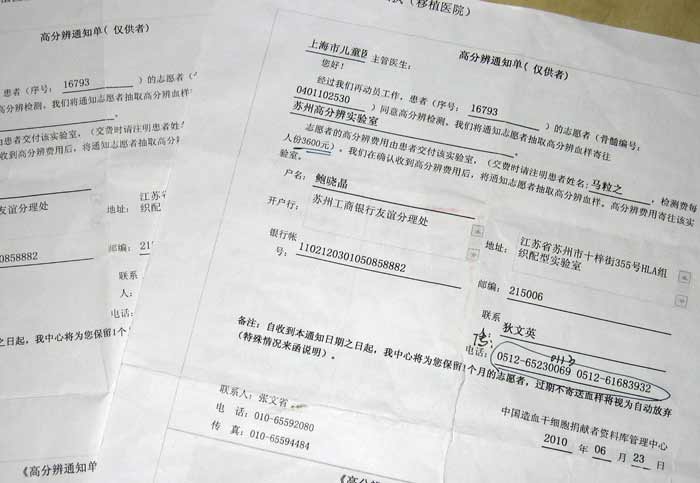 （移植医院）
高分辨通知单(（仅供者）
患者（序号： 16793 ）的志愿者（
分辨检测。我们将通知志愿者抽取高分辨血样
由患者交付该实验室，（交费时请注明患者姓名
收到高分辨费用后，将通知志愿者抽取高分
友谊分理处
050858882
地址：
江苏省
织配型
邮编： 215
联系
人：
电话：
之日起，我中心将为您保留1个
《高分辨通知单
高分辨通知单(（仅供者）
上海市儿童医 主管医生：
您好！
经过我们再动员工作，患者（序号： 16793 ）的志愿者（骨髓编号：
0401102530 ）同意高分辨检测。我们将通知志愿者抽取高分辨血样寄往
苏州高分辨实验室
志愿者的高分辨费用由患者交付该实验室，（交费时请注明患者姓名：马粒之，检测费每
人份3600元）。我们在确认收到高分辨费用后，将通知志愿者抽取高分辨血样。高分辨费用寄往该实
验室。
户名： 鲍晓晶
开户行： 苏州工商银行友谊分理处
银行帐
号： 1102120301050858882
地址： 江苏省苏州市十梓街355号HLA组
织配型实验室
邮编： 215006
联系
人： 狄文英
电话： 0512-65230069 0512-61683932
备注：自收到本通知日期之日起，我中心将为您保留1个月的志愿者，过期不寄送血样将视为自动放弃
（特殊情况来函说明）。
中国造血干细胞捐献者资料库管理中心
2010 年 06 月 23 日
联系人：张文省
电 话：010-65592080
传 真：010-65594484
《高分辨通知单
《高